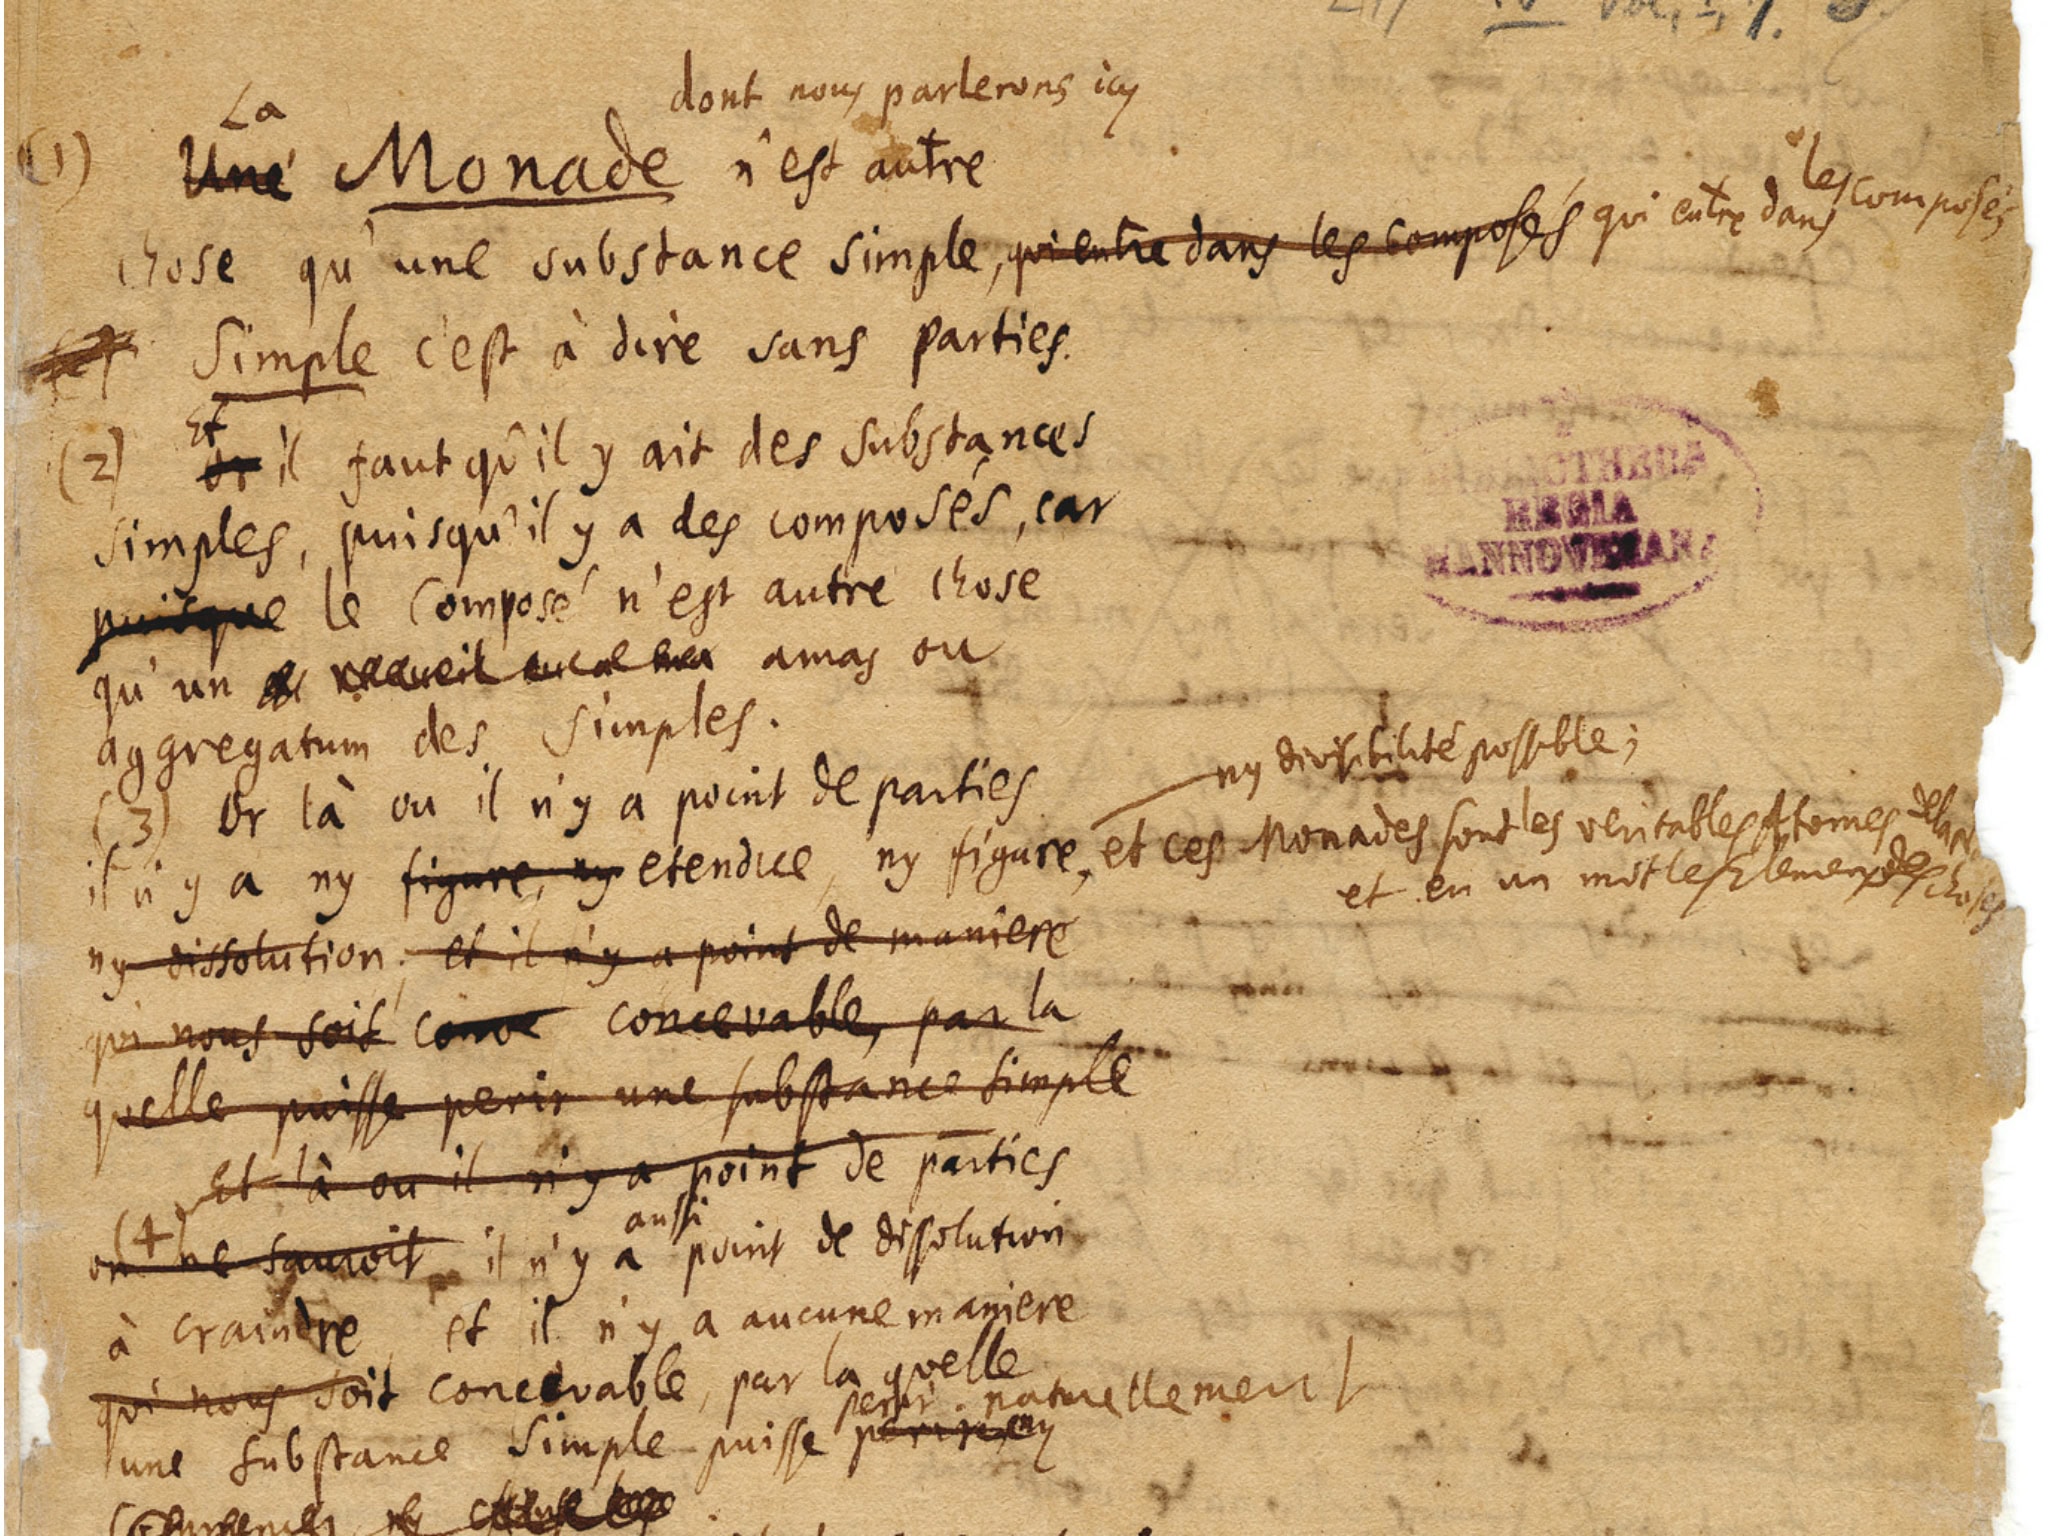 dont nous parlerons icy
La
(1) Une Monade n'est autre
chose qu'une substance simple, qui entre dans les composés qui entre dans les composés
Simple c'est à dire sans parties.
Et
(2) Or il faut qu'il y ait des substances
simples, puisqu'il y a des composés, car
puisque le composé n'est autre chose
qu'un recueil amas ou
aggregatum des simples.
(3) Or là ou il n'y a point de parties
ny divisibilité possible;
il n'y a ny figure, ny etendue, ny figure, et ces Monades sont les veritables Atomes de la
et en un mot les Elemens des choses
ny dissolution, et il n'y a point de maniere
qui nous soit conce concevable, par la
quelle puisse perir une substance simple
Et là ou il n'y a point de parties
aussi
(4) on ne sauroit il n'y a point de dissolution
à craindre, et il n'y a aucune maniere
qui nous soit concevable, par la quelle
perir naturellement
une substance simple puisse perir, ny
BIBLIOTHECA
REGIA
HANNOVERANA